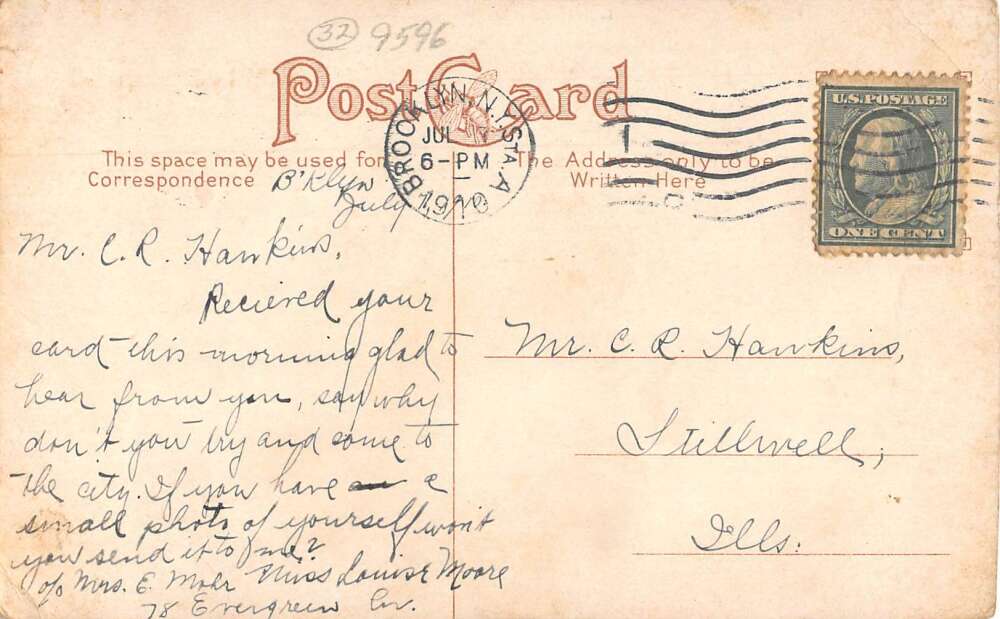 32 9596
Post Card
BROOKLYN, N.Y. STA. A
JUL
6-PM
1910
U.S. POSTAGE
ONE CENT
This space may be used for
Correspondence
The Address only to be
Written Here
B'klyn
July
Mr. C. R. Hawkins,
Recieved your
card this morning glad to
hear from you, say why
don't you try and come to
the city. If you have a
small photo of yourself won't
you send it to me?
Miss Louise Moore
c/o Mrs. E. Mohr
78 Evergreen Av.
Mr. C. R. Hawkins,
Stillwell,
Ills.